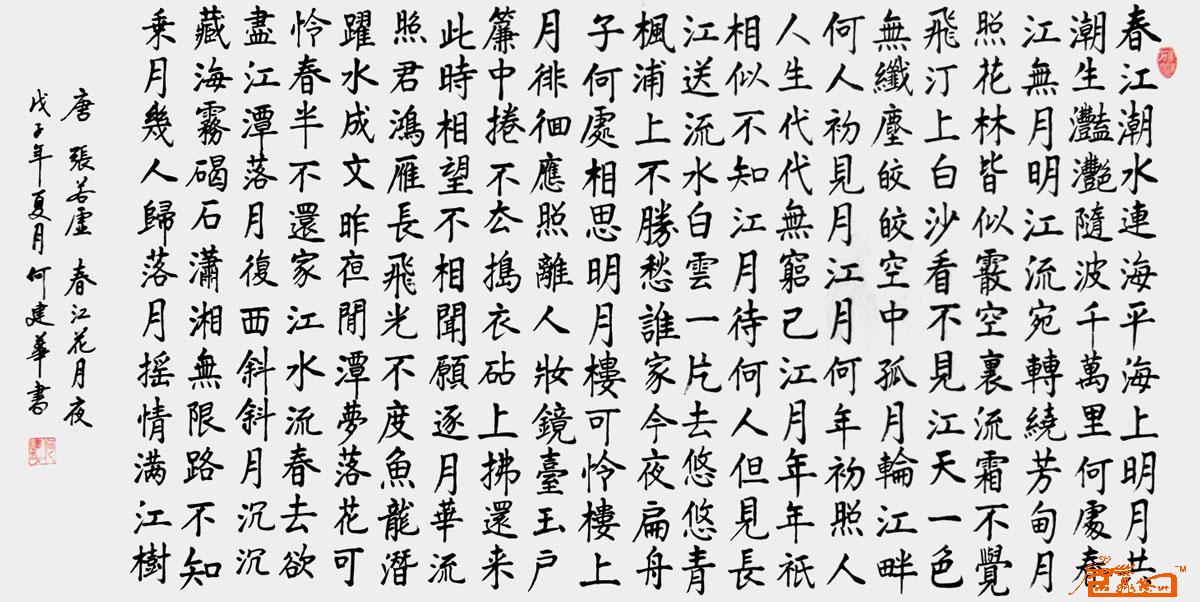 春江潮水連海平海上明月共
潮生灩灩隨波千萬里何處春
江無月明江流宛轉繞芳甸月
照花林皆似霰空裏流霜不覺
飛汀上白沙看不見江天一色
無纖塵皎皎空中孤月輪江畔
何人初見月江月何年初照人
人生代代無窮已江月年年祇
相似不知江月待何人但見長
江送流水白雲一片去悠悠青
楓浦上不勝愁誰家今夜扁舟
子何處相思明月樓可怜樓上
月徘徊應照離人妝鏡臺玉戶
簾中捲不去搗衣砧上拂還来
此時相望不相聞願逐月華流
照君鴻雁長飛光不度魚龍潛
躍水成文昨夜閒潭夢落花可
怜春半不還家江水流春去欲
盡江潭落月復西斜斜月沉沉
藏海霧碣石瀟湘無限路不知
乗月幾人歸落月摇情满江樹
唐 張若虛 春江花月夜
戊子年夏月何建華書